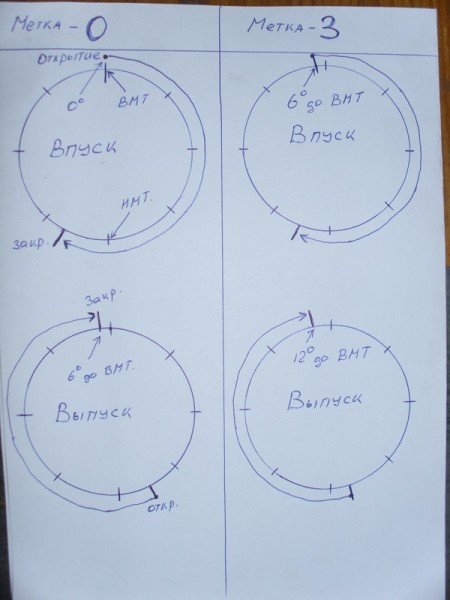 Метка-0
Метка-3
открытие
0°
ВМТ
Впуск
НМТ.
закр.
6° до ВМТ
Впуск
закр.
6° до ВМТ.
Выпуск
откр.
12° до ВМТ
Выпуск